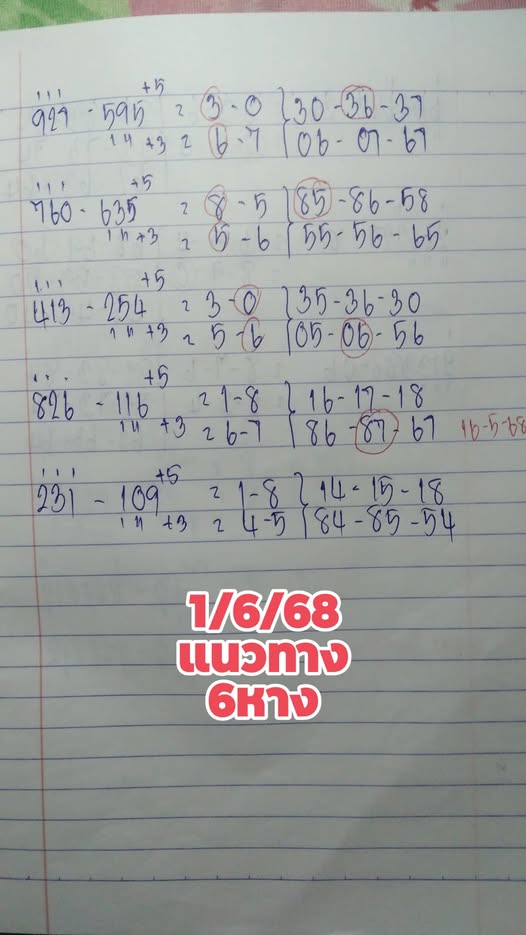 +5
927 - 595 = 3 - 0 } 30 - 36 - 37
+3 = 6 - 7 { 06 - 07 - 67
+5
760 - 635 = 8 - 5 } 85 - 86 - 58
+3 = 5 - 6 { 55 - 56 - 65
+5
413 - 254 = 3 - 0 } 35 - 36 - 30
+3 = 5 - 6 { 05 - 06 - 56
+5
826 - 116 = 1 - 8 } 16 - 17 - 18
+3 = 6 - 7 { 86 - 87 - 67 16-5-68
+5
231 - 109 = 1 - 8 } 14 - 15 - 18
+3 = 4 - 5 { 84 - 85 - 54
1/6/68
แนวทาง
6หาง